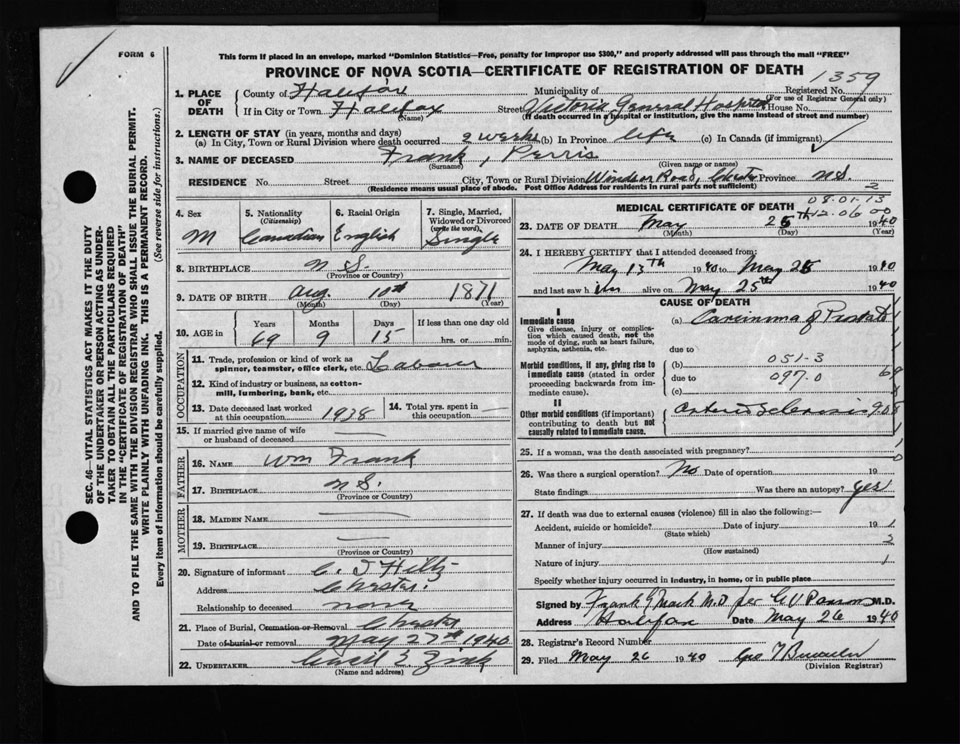 FORM 6
This form if placed in an envelope, marked "Dominion Statistics—Free, penalty for improper use $300," and properly addressed will pass through the mail "FREE"
PROVINCE OF NOVA SCOTIA—CERTIFICATE OF REGISTRATION OF DEATH
1359
SEC. 46—VITAL STATISTICS ACT MAKES IT THE DUTY
OF THE UNDERTAKER OR PERSON ACTING AS UNDER-
TAKER TO OBTAIN ALL THE PARTICULARS REQUIRED
IN THE "CERTIFICATE OF REGISTRATION OF DEATH"
AND TO FILE THE SAME WITH THE DIVISION REGISTRAR WHO SHALL ISSUE THE BURIAL PERMIT.
WRITE PLAINLY WITH UNFADING INK. THIS IS A PERMANENT RECORD.
Every item of information should be carefully supplied. (See reverse side for instructions.)
1. PLACE OF DEATH
County of Halifax Municipality of Registered No.
(For use of Registrar General only)
If in City or Town Halifax Street Victoria General Hospital House No.
(Name) (If death occurred in a hospital or institution, give the name instead of street and number)
2. LENGTH OF STAY (in years, months and days)
(a) In City, Town or Rural Division where death occurred 2 weeks (b) In Province life (c) In Canada (if immigrant)
3. NAME OF DECEASED Frank, Perris
(Surname) (Given name or names)
RESIDENCE No. Street City, Town or Rural Division Windsor Road, Chester Province N.S.
(Residence means usual place of abode. Post Office Address for residents in rural parts not sufficient)
2
4. Sex M
5. Nationality (Citizenship) Canadian
6. Racial Origin English
7. Single, Married, Widowed or Divorced (write the word) Single
8. BIRTHPLACE N S.
(Province or Country)
9. DATE OF BIRTH Aug 10th 1871
(Month) (Day) (Year)
10. AGE in Years Months Days If less than one day old
69 9 15 hrs. or min.
OCCUPATION
11. Trade, profession or kind of work as spinner, teamster, office clerk, etc. Labour
12. Kind of industry or business, as cotton-mill, lumbering, bank, etc.
13. Date deceased last worked at this occupation 1938
14. Total yrs. spent in this occupation —
15. If married give name of wife or husband of deceased —
FATHER
16. NAME Wm Frank
17. BIRTHPLACE N S.
(Province or Country)
MOTHER
18. MAIDEN NAME —
19. BIRTHPLACE —
(Province or Country)
20. Signature of informant C. J Hiltz
Address Chester.
Relationship to deceased none
21. Place of Burial, Cremation or Removal Chester
Date of burial or removal May 27th 1940
22. UNDERTAKER Cecil E. Zink
(Name and address)
MEDICAL CERTIFICATE OF DEATH
08.01.13
12.06.00
23. DATE OF DEATH May 25 1940
(Month) (Day) (Year)
24. I HEREBY CERTIFY that I attended deceased from:
May 13th 1940 to May 25 1940
and last saw him alive on May 25th 1940
CAUSE OF DEATH
I
Immediate cause
Give disease, injury or complication which caused death, not the mode of dying, such as heart failure, asphyxia, asthenia, etc.
(a) Carcinoma of Prostate
due to
Morbid conditions, if any, giving rise to immediate cause (stated in order proceeding backwards from immediate cause).
(b) 051-3
due to 097.0
(c)
II
Other morbid conditions (if important) contributing to death but not causally related to immediate cause.
Arterio Sclerosis
25. If a woman, was the death associated with pregnancy?
26. Was there a surgical operation? No Date of operation 19
State findings Was there an autopsy? yes
27. If death was due to external causes (violence) fill in also the following:—
Accident, suicide or homicide? Date of injury 19 1
(State which)
Manner of injury 2
(How sustained)
Nature of injury 1
Specify whether injury occurred in industry, in home, or in public place
Signed by Frank G Mack M.D per G V Parsons M.D.
Address Halifax Date May 26 1940
28. Registrar's Record Number
29. Filed May 26 1940 Geo T
(Division Registrar)